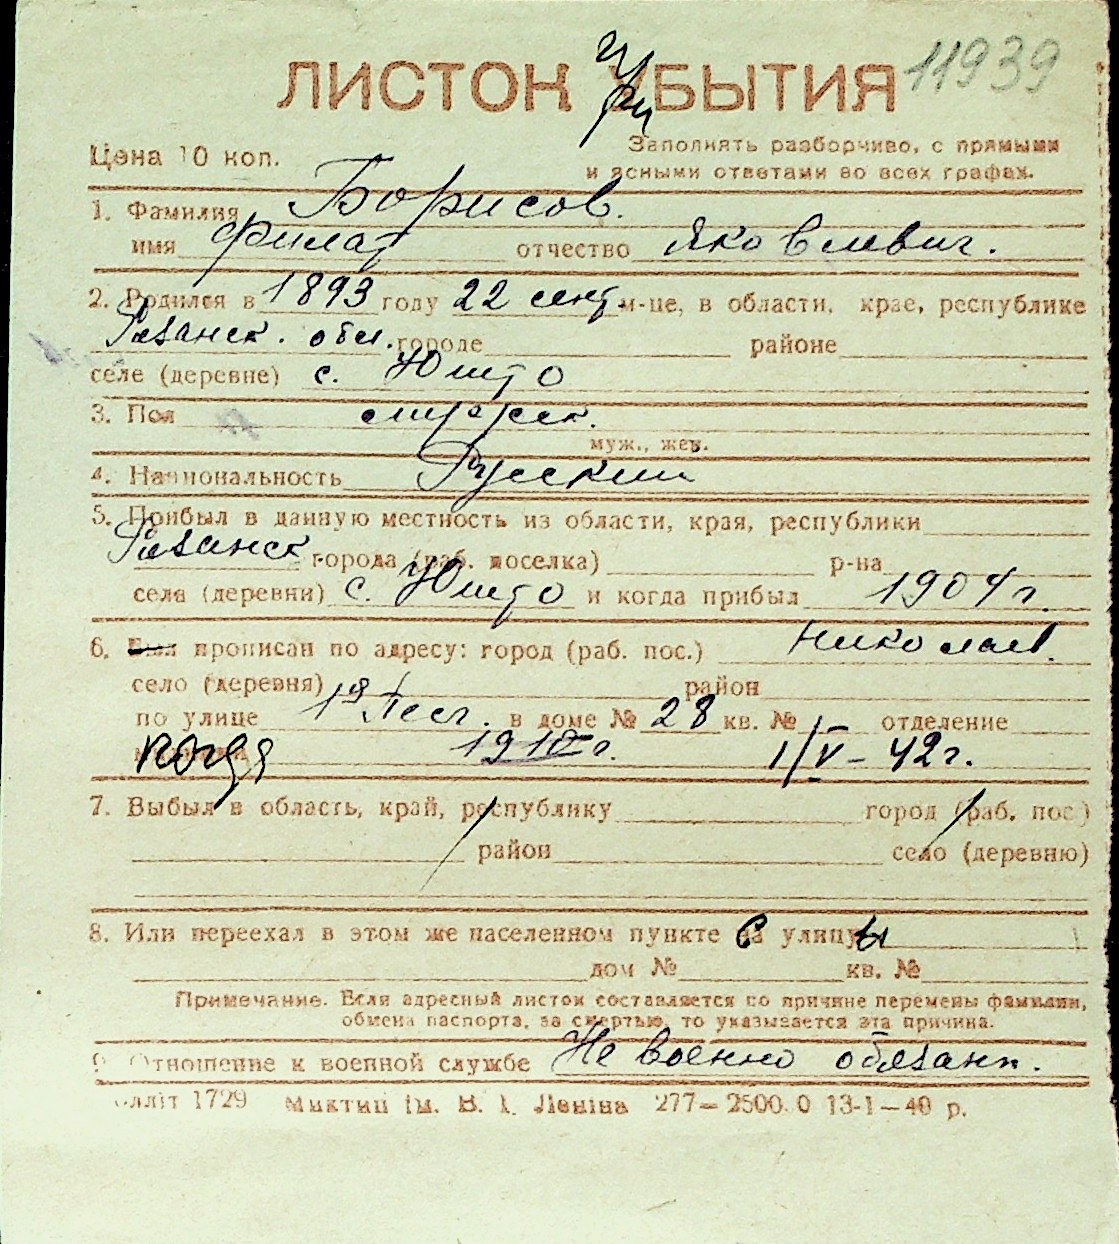 11939
ЛИСТОК ПриБЫТИЯ
Цена 10 коп. Заполнять разборчиво, с прямыми
и ясными ответами во всех графах.
1. Фамилия Борисов.
имя Филат отчество Яковлевич.
2. Родился в 1893 году 22 сент. м-це, в области, крае, республике
Рязанск. обл. городе районе
селе (деревне) с. Юшто
3. Пол мужск.
муж., жен.
4. Национальность Русский
5. Прибыл в данную местность из области, края, республики
Рязанск города (раб. поселка) р-на
села (деревни) с. Юшто и когда прибыл 1904 г.
6. Был прописан по адресу: город (раб. пос.) Николаев.
село (деревня) район
по улице 1я Песч. в доме № 28 кв. № отделение
когда 1910 г. 1/V – 42 г.
7. Выбыл в область, край, республику город (раб. пос.)
район село (деревню)
8. Или переехал в этом же населенном пункте с улицы
дом № кв. №
Примечание. Если адресный листок составляется по причине перемены фамилии,
обмена паспорта, за смертью, то указывается эта причина.
9. Отношение к военной службе Не военно обязанн.
лліт 1729 Миктип ім. В. І. Леніна 277—2500.0 13-1—40 р.